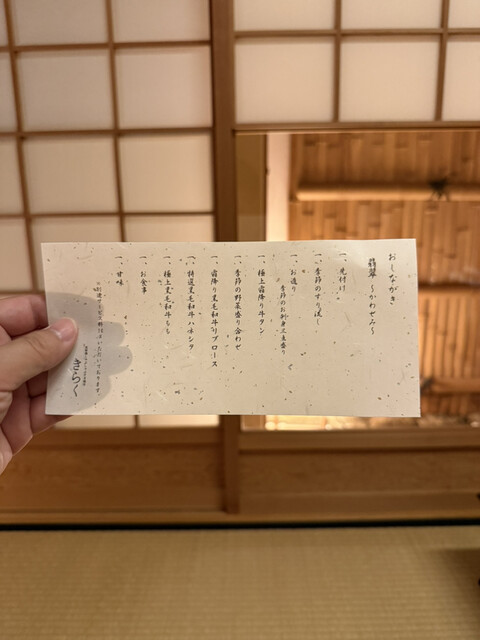 おしながき
翡翠 〜かわせみ〜
一、先付け
一、季節のすり流し
一、お造り
季節のお刺身三点盛り
一、極上霜降り牛タン
一、季節の野菜盛り合わせ
一、霜降り黒毛和牛リブロース
一、特選黒毛和牛ハネシタ
一、極上黒毛和牛もも
一、お食事
一、甘味
きらく